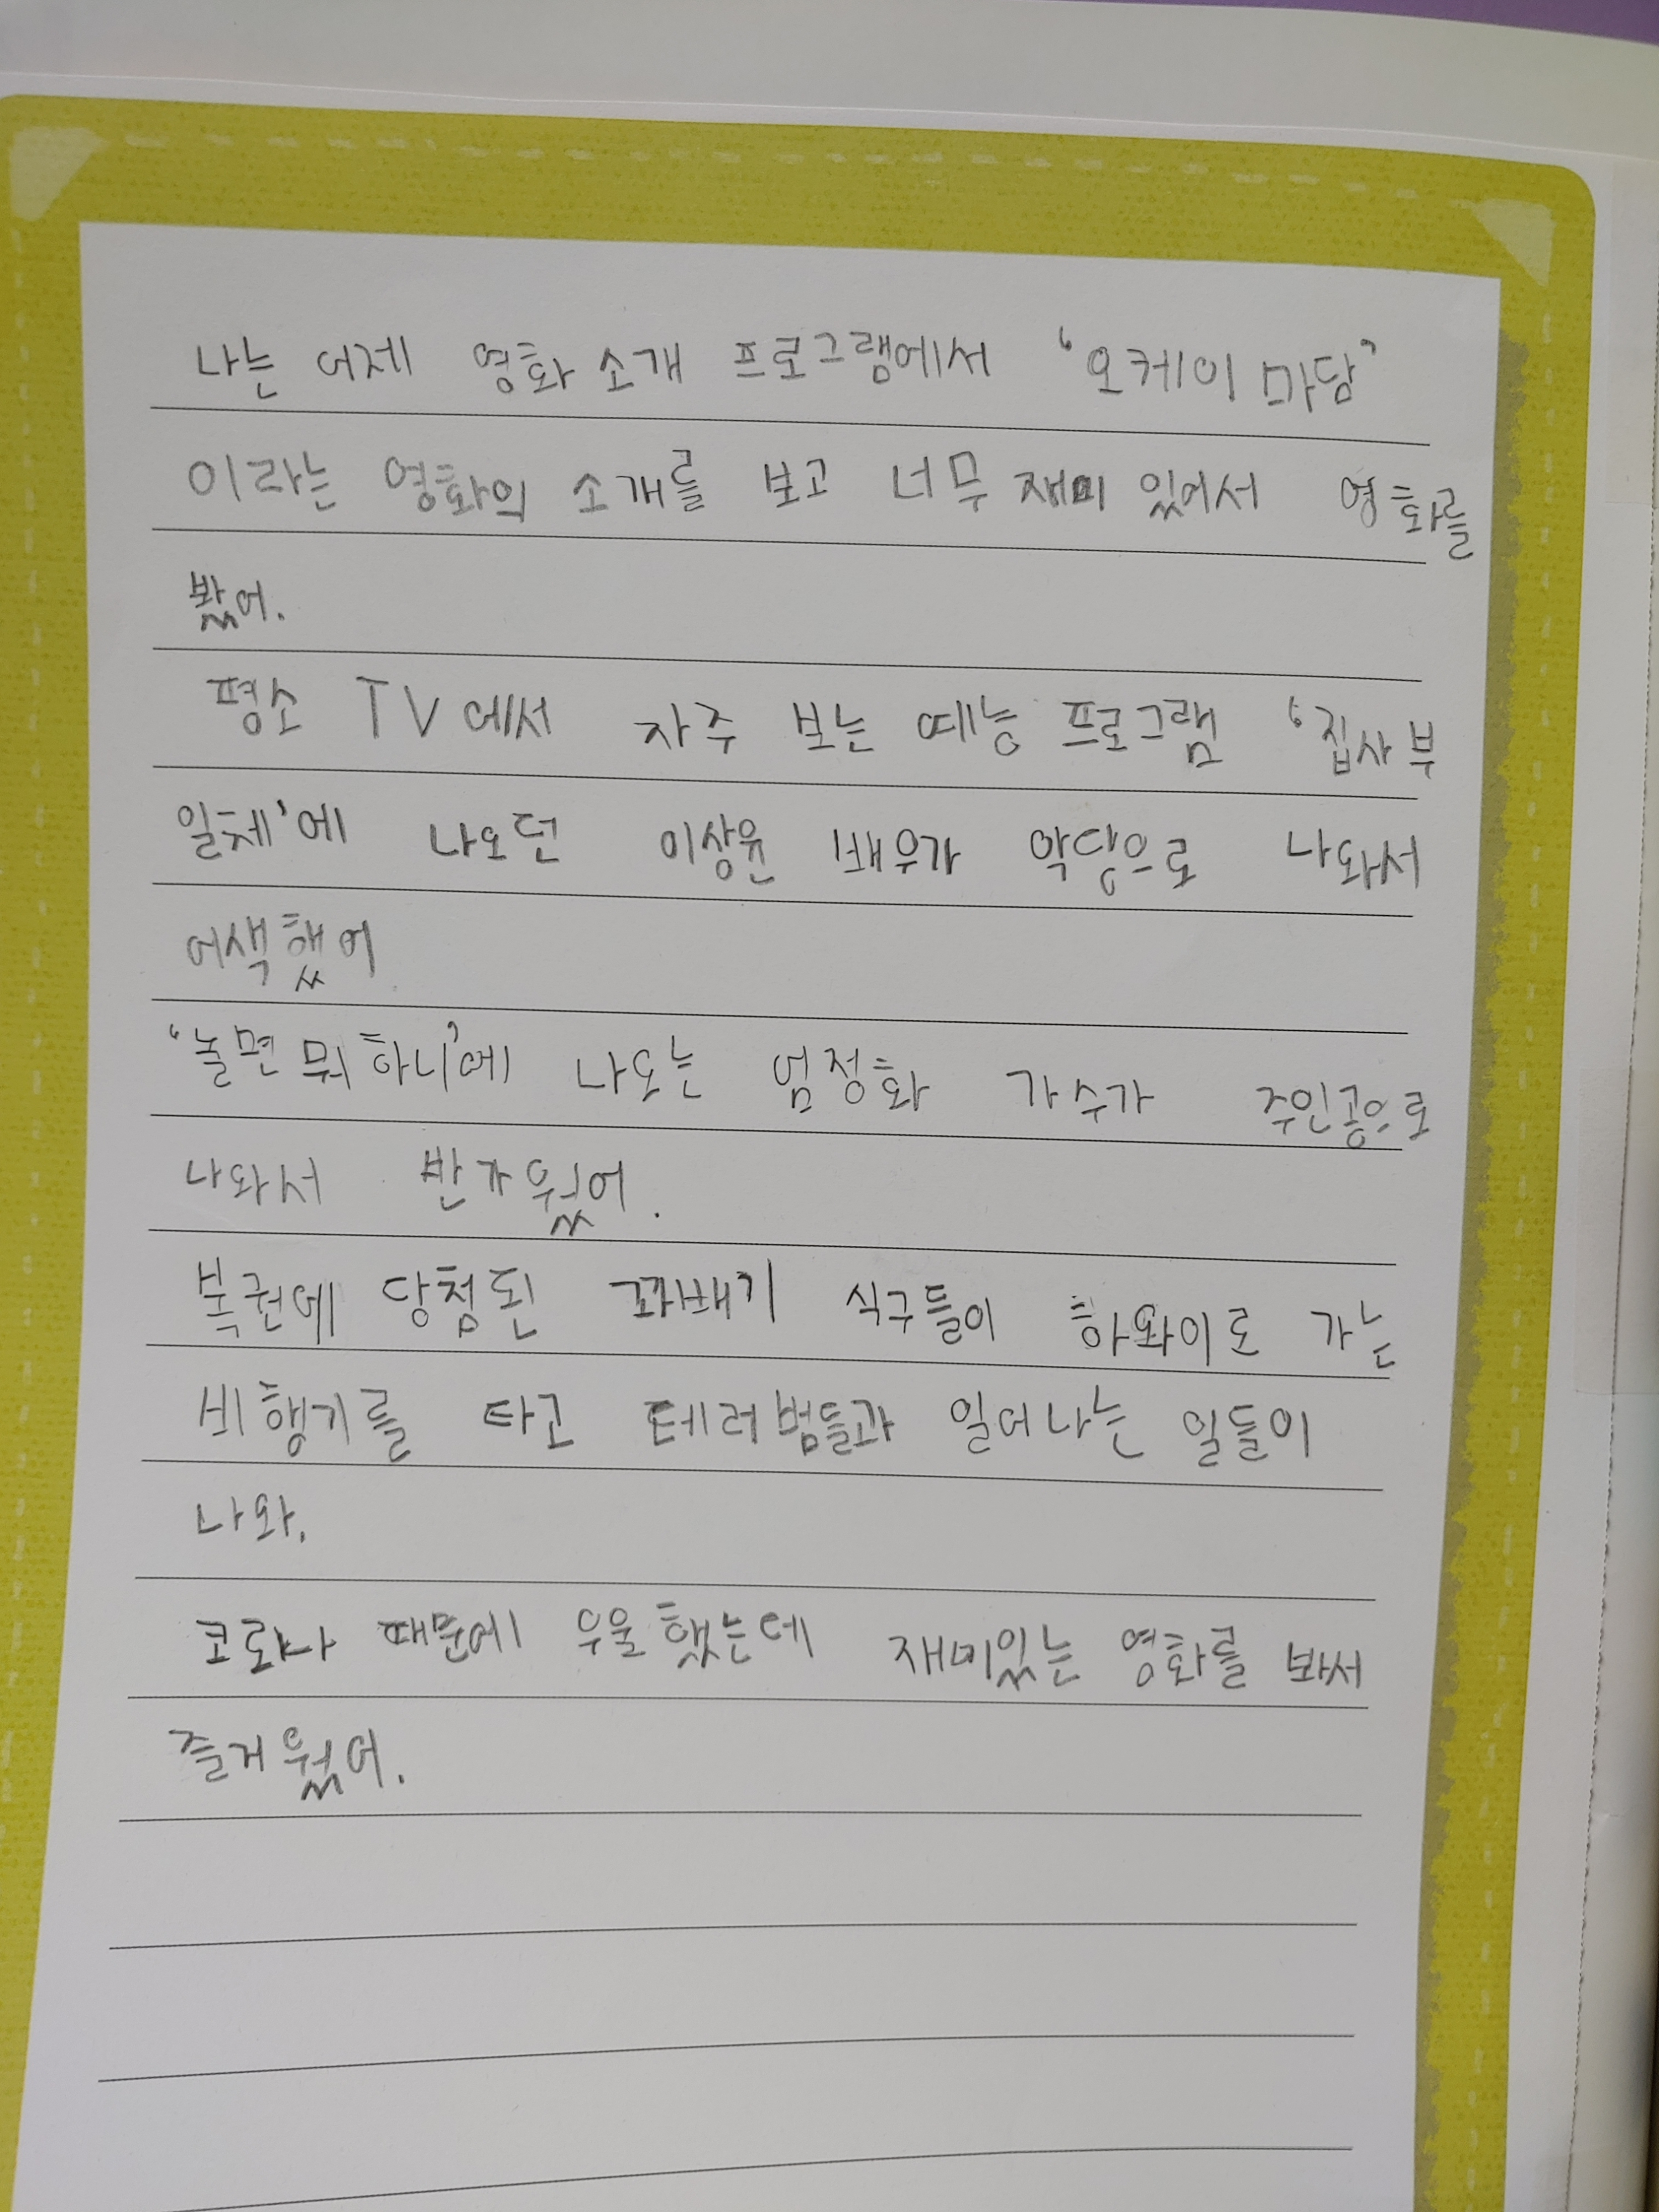 나는 어제 영화 소개 프로그램에서 '오케이 마담'
이라는 영화의 소개를 보고 너무 재미 있어서 영화를
봤어.
평소 TV에서 자주 보는 예능 프로그램 '집사부
일체'에 나오던 이상윤 배우가 악당으로 나와서
어색했어
'놀면 뭐 하니'에 나오는 엄정화 가수가 주인공으로
나와서 반가웠어.
복권에 당첨된 꽈배기 식구들이 하와이로 가는
비행기를 타고 테러범들과 일어나는 일들이
나와.
코로나 때문에 우울했는데 재미있는 영화를 봐서
즐거웠어.